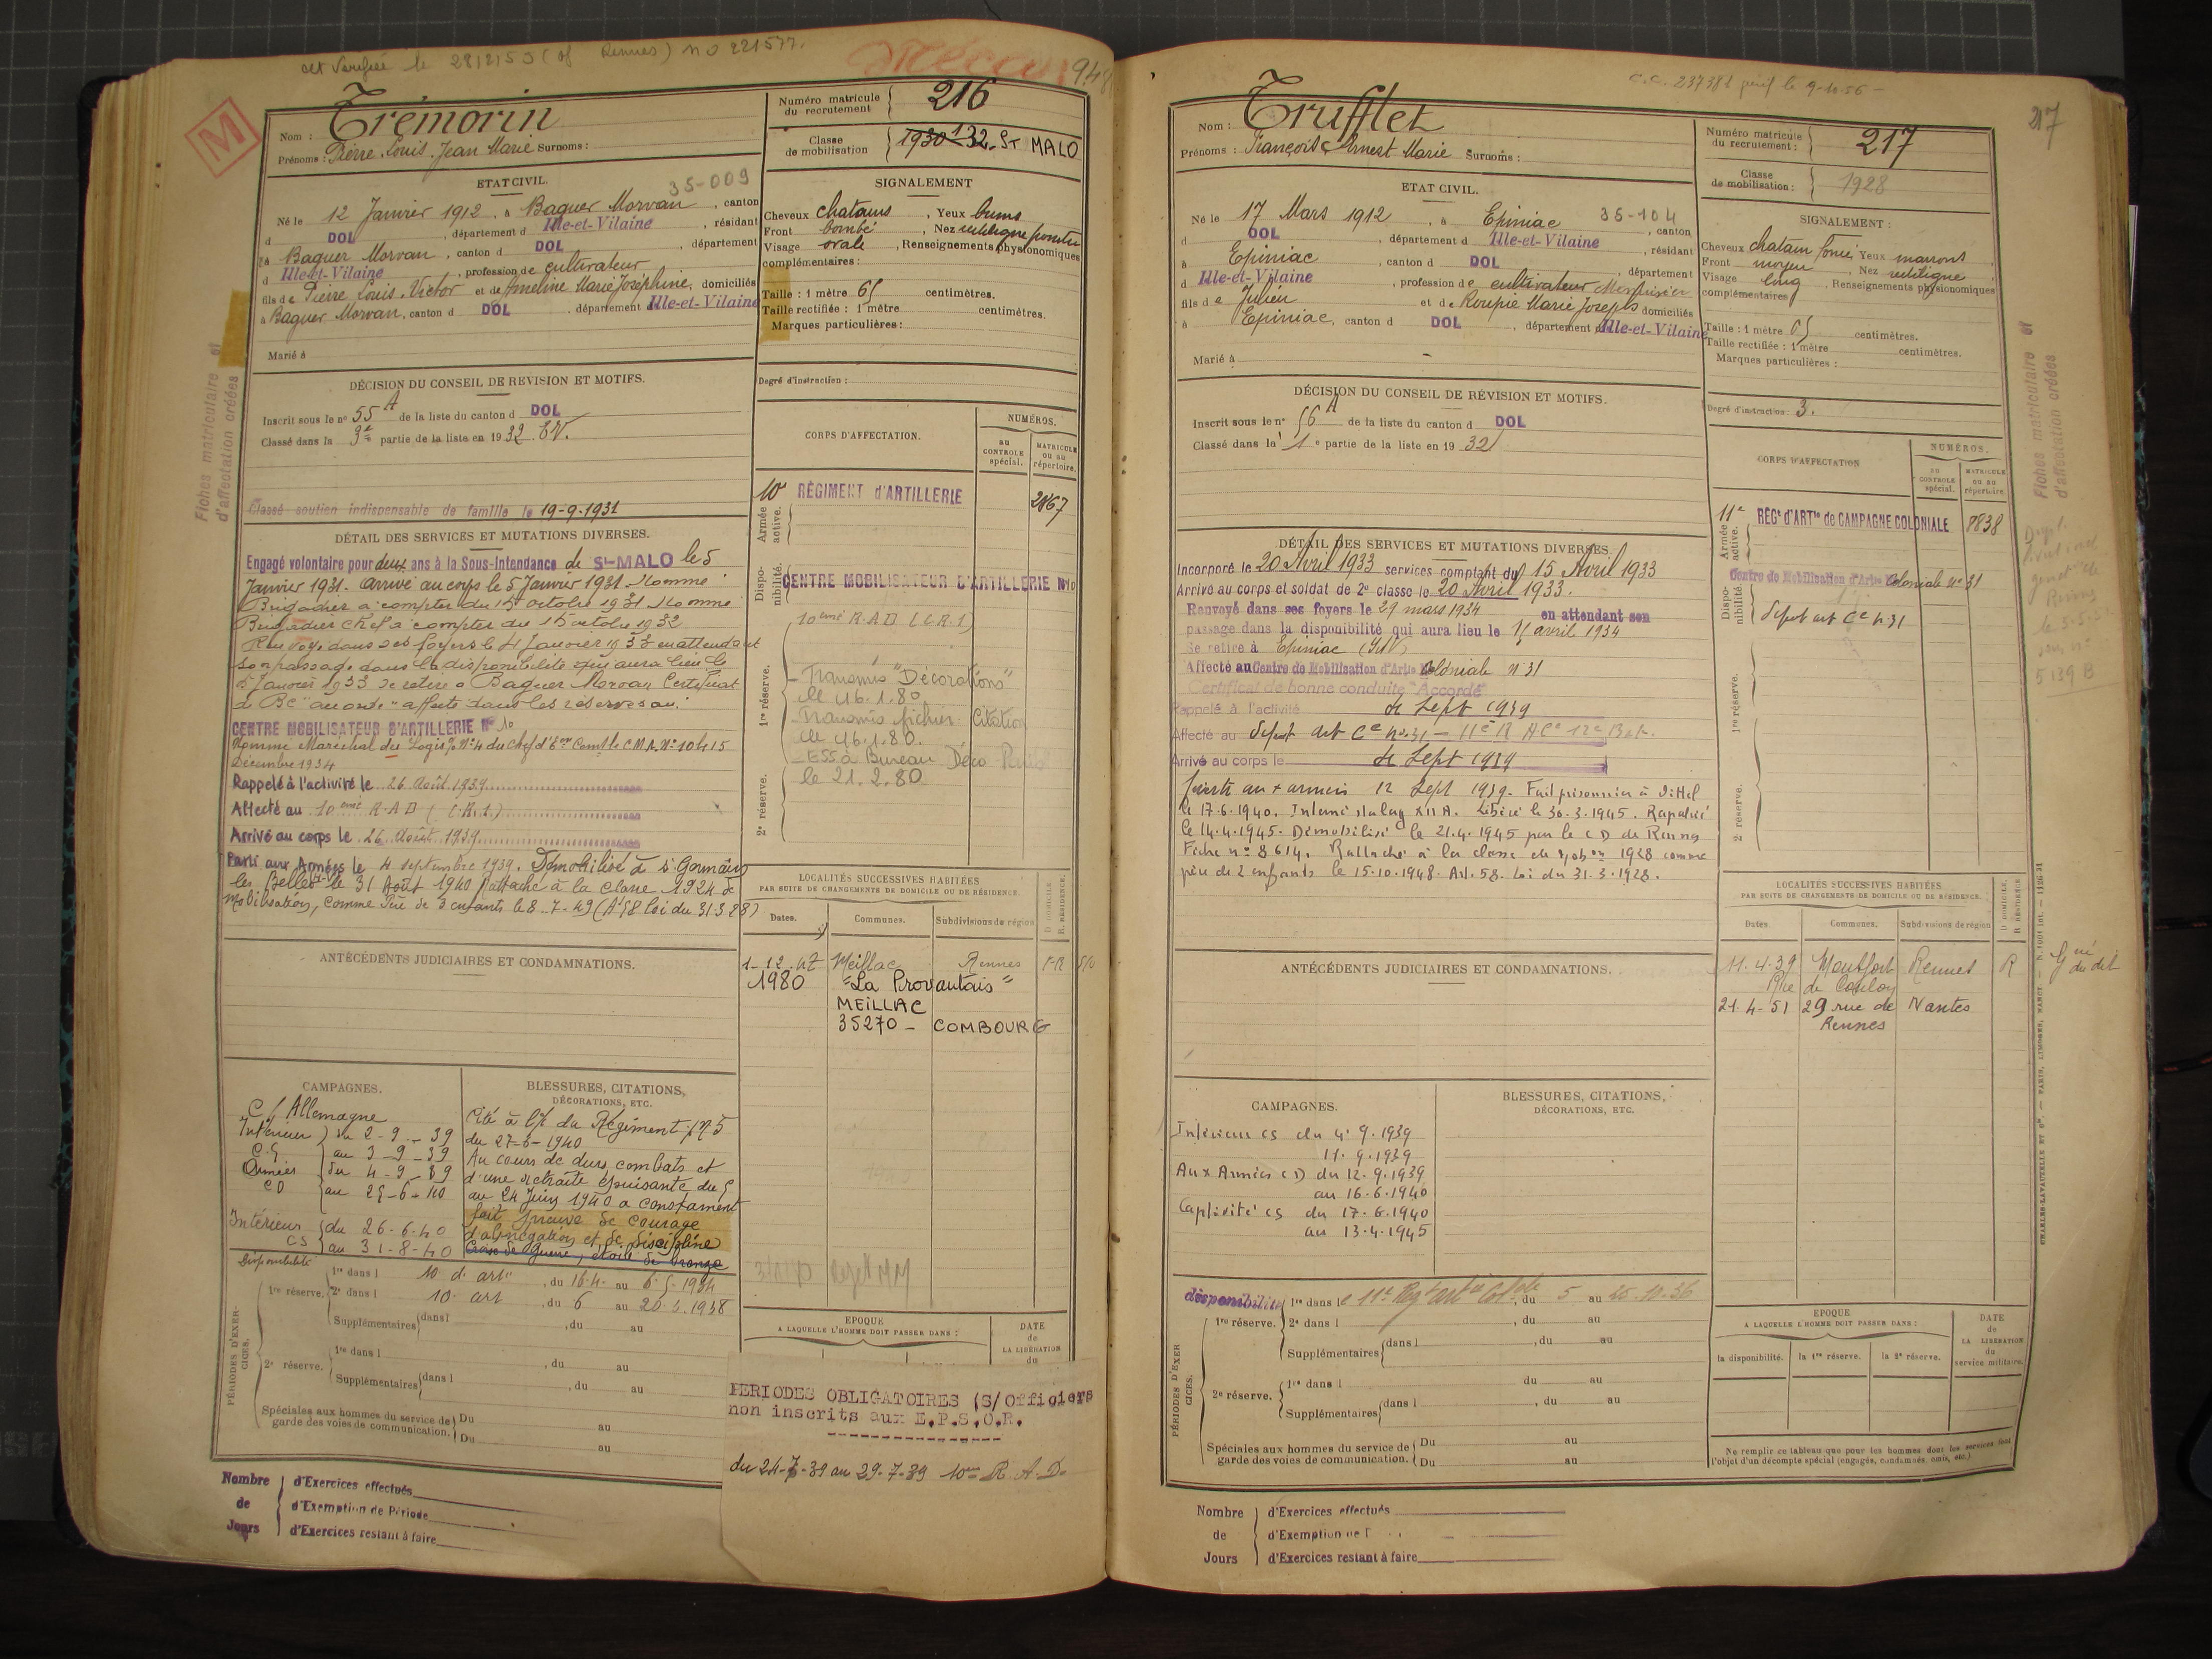 cct Verifiée le 28/2/55 (of Rennes) no 221577.
M
Nom : Trémorin
Prénoms : Pierre Louis Jean Marie Surnoms :
Numéro matricule du recrutement 216
Classe de mobilisation 1930 132 - ST MALO
ETAT CIVIL.
35-009
Né le 12 Janvier 1912, à Baguer Morvan, canton
d DOL, département d Ille-et-Vilaine, résidant
à Baguer Morvan, canton d DOL, département
d Ille-et-Vilaine, profession de cultivateur
fils de Pierre Louis Victor et de Ameline Marie Joséphine, domiciliés
à Baguer Morvan, canton d DOL, département Ille-et-Vilaine
Marié à
SIGNALEMENT
Cheveux chatains, Yeux bruns
Front bombé, Nez rectiligne
Visage ovale, Renseignements physionomiques
complémentaires :
Taille : 1 mètre 65 centimètres.
Taille rectifiée : 1 mètre centimètres.
Marques particulières :
Degré d'instruction :
DÉCISION DU CONSEIL DE REVISION ET MOTIFS.
Inscrit sous le n° 55 A de la liste du canton d DOL
Classé dans la 3e partie de la liste en 1932 EV.
Classé soutien indispensable de famille le 19-9-1931
CORPS D'AFFECTATION.
NUMÉROS.
au CONTROLE spécial.
MATRICULE ou au répertoire.
Armée active.
10e RÉGIMENT d'ARTILLERIE 2867
Disponibilité.
CENTRE MOBILISATEUR D'ARTILLERIE N°10
10eme R.A.D (C.R.1)
1re réserve.
Transmis "Décorations"
le 16.1.80
Transmis fichier Citation
le 16.1.80.
ESS à Bureau Déco
le 21.2.80
2e réserve.
DÉTAIL DES SERVICES ET MUTATIONS DIVERSES.
Engagé volontaire pour deux ans à la Sous-Intendance de St-MALO le 5
Janvier 1931. Arrivé au corps le 5 Janvier 1931. Nommé
Brigadier à compter du 15 octobre 1931 Nommé
Brigadier Chef à compter du 15 octobre 1932
Renvoyé dans ses foyers le 4 Janvier 1933 en attendant
son passage dans la disponibilité qui aura lieu le
5 Janvier 1933 se retire à Baguer Morvan Certificat
de BC accordé affecté dans les réserves au
CENTRE MOBILISATEUR D'ARTILLERIE N° 10
Nommé Maréchal des Logis
Décembre 1934
Rappelé à l'activité le 26 Août 1939
Affecté au 10eme R.A.D (C.R.1.)
Arrivé au corps le 26 Août 1939
Parti aux Armées le 4 septembre 1939. Démobilisé à St Germain
les Belles le 31 Août 1940 Rattaché à la classe 1924 de
mobilisation, comme Père de 3 enfants le 8-7-49 (At 58 loi du 31 3 28)
ANTÉCÉDENTS JUDICIAIRES ET CONDAMNATIONS.
LOCALITÉS SUCCESSIVES HABITÉES
PAR SUITE DE CHANGEMENTS DE DOMICILE OU DE RÉSIDENCE.
Dates. Communes. Subdivisions de région D DOMICILE. R. RÉSIDENCE.
1-12-47 Meillac Rennes
1980 "La Provautais"
MEILLAC
35270 - COMBOURG
CAMPAGNES.
C/ Allemagne
Intérieur du 2-9-39
CS au 3-9-39
Armées du 4-9-39
CD au 25-6-40
Intérieur du 26-6-40
CS au 31-8-40
BLESSURES, CITATIONS,
DÉCORATIONS, ETC.
Cité à l'O/ du Régiment n°5
du 27-6-1940
Au cours de durs combats et
d'une retraite épuisante du 5
au 24 Juin 1940 a constament
fait preuve de courage
d'abnégation et de discipline
Croix de Guerre, étoile de bronze
Disponibilité
PÉRIODES D'EXERCICES.
1re réserve. 1re dans l 10 d. art, du 16.4. au 6.5.1934
2e dans l 10. art, du 6 au 26.3.1938
Supplémentaires dans l, du au
2e réserve. 1re dans l, du au
Supplémentaires dans l, du au
Spéciales aux hommes du service de garde des voies de communication. Du au
Du au
EPOQUE
A LAQUELLE L'HOMME DOIT PASSER DANS :
DATE de LA LIBÉRATION du
PERIODES OBLIGATOIRES (S/Officiers
non inscrits aux E.P.S.O.R.
du 24-7-39 au 29-7-39 10eme R.A.D.
Nombre de Jours
d'Exercices effectués
d'Exemption de Période
d'Exercices restant à faire
Fiches matriculaire et
d'affectation créées
C.C. 237382 9-10-56
217
Nom : Trufflet
Prénoms : François Ernest Marie Surnoms :
Numéro matricule du recrutement : 217
Classe de mobilisation : 1928
ETAT CIVIL.
Né le 17 Mars 1912, à Epiniac 35-104, canton
d DOL, département d Ille-et-Vilaine, résidant
à Epiniac, canton d DOL, département
d Ille-et-Vilaine, profession de cultivateur Menuisier
fils de Julien et de Roupie Marie Josephe domiciliés
à Epiniac, canton d DOL, département d Ille-et-Vilaine
Marié à
SIGNALEMENT :
Cheveux chatain foncé Yeux marrons
Front moyen, Nez rectiligne
Visage long, Renseignements physionomiques
complémentaires
Taille : 1 mètre 65 centimètres.
Taille rectifiée : 1 mètre centimètres.
Marques particulières :
Degré d'instruction : 3.
DÉCISION DU CONSEIL DE RÉVISION ET MOTIFS.
Inscrit sous le n° 56 A de la liste du canton d DOL
Classé dans la 1e partie de la liste en 1932
CORPS D'AFFECTATION
NUMÉROS.
au CONTROLE spécial.
MATRICULE ou au répertoire.
Armée active.
11e RÉGt d'ARTie de CAMPAGNE COLONIALE 8838
Disponibilité
Centre de Mobilisation d'Artie Coloniale n° 31
Dépot art Ce n°31
1re réserve.
2e réserve.
DÉTAIL DES SERVICES ET MUTATIONS DIVERSES.
Incorporé le 20 Avril 1933 services comptant du 15 Avril 1933
Arrivé au corps et soldat de 2e classe le 20 Avril 1933.
Renvoyé dans ses foyers le 29 mars 1934 en attendant son
passage dans la disponibilité qui aura lieu le 15 avril 1934
Se retire à Epiniac (I&V)
Affecté au Centre de Mobilisation d'Artie Coloniale n°31
Certificat de bonne conduite "Accordé"
Rappelé à l'activité 4 Sept 1939
Affecté au Dépot art Ce n°31 - 11e R A Ce 12e Bat.
Arrivé au corps le 4 Sept 1939
Parti aux armées 12 Sept 1939. Fait prisonnier à Vittel
le 17-6-1940. Interné stalag XII A. Libéré le 30-3-1945. Rapatrié
le 14-4-1945. Démobilisé le 21-4-1945 par le CD de Rennes
Fiche n° 8614. Rattaché à la classe de mobon 1928 comme
père de 2 enfants le 15-10-1948. Art. 58. Loi du 31.3.1928.
ANTÉCÉDENTS JUDICIAIRES ET CONDAMNATIONS.
LOCALITÉS SUCCESSIVES HABITÉES
PAR SUITE DE CHANGEMENTS DE DOMICILE OU DE RÉSIDENCE.
Dates Communes. Subdivisions de région D DOMICILE. R RÉSIDENCE
11.4.39 Montfort Rennes R
21-4-51 29 rue de Rennes Nantes
CAMPAGNES.
Intérieur CS du 4.9.1939
11.9.1939
Aux Armées CD du 12.9.1939
au 16.6.1940
Captivité CS du 17.6.1940
au 13.4.1945
BLESSURES, CITATIONS,
DÉCORATIONS, ETC.
disponibilité
PÉRIODES D'EXERCICES.
1re réserve. 1re dans le 11e Regt art Colale, du 5 au 25.10.36
2e dans l, du au
Supplémentaires dans l, du au
2e réserve. 1re dans l du au
Supplémentaires dans l, du au
Spéciales aux hommes du service de garde des voies de communication. Du au
Du au
EPOQUE
A LAQUELLE L'HOMME DOIT PASSER DANS :
la disponibilité. la 1re réserve. la 2e réserve.
DATE de LA LIBÉRATION du service militaire.
Ne remplir ce tableau que pour les hommes dont les services font
l'objet d'un décompte spécial (engagés, condamnés, omis, etc.)
Nombre de Jours
d'Exercices effectués
d'Exemption de
d'Exercices restant à faire
Fiches matriculaire et
d'affectation créées
CHARLES-LAVAUZELLE ET Cie. — PARIS, LIMOGES, NANCY